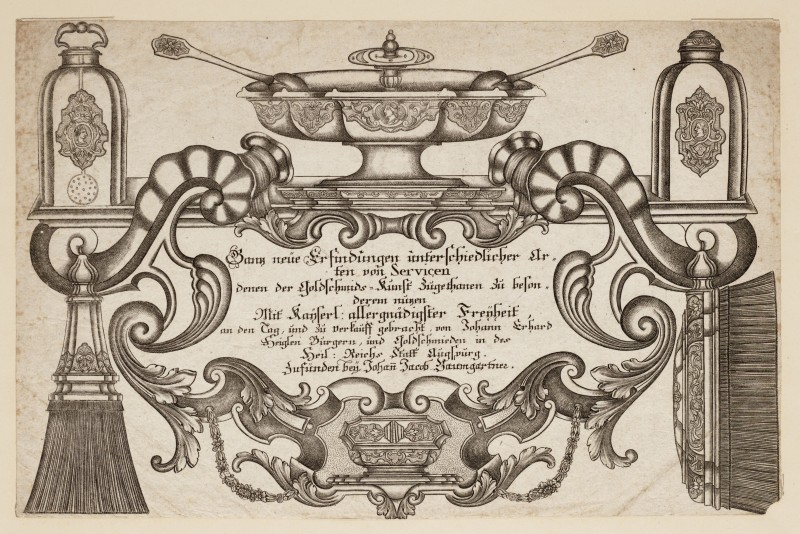 Gantz neüe Erfindungen ünterschiedlicher Ar-
ten von Servicen
denen der Goldschmids-Künst Zügethanen zü beson-
derem nüzen
Mit Kaÿserl: allergnädigster Freÿheit
an den Tag, und zü verkauff gebracht, von Johann Erhard
Heiglen Bürgern, und Goldschmieden in des
Heil: Reichs Statt Augspürg.
Zufünden beÿ Johañ Jacob Baumgartner.